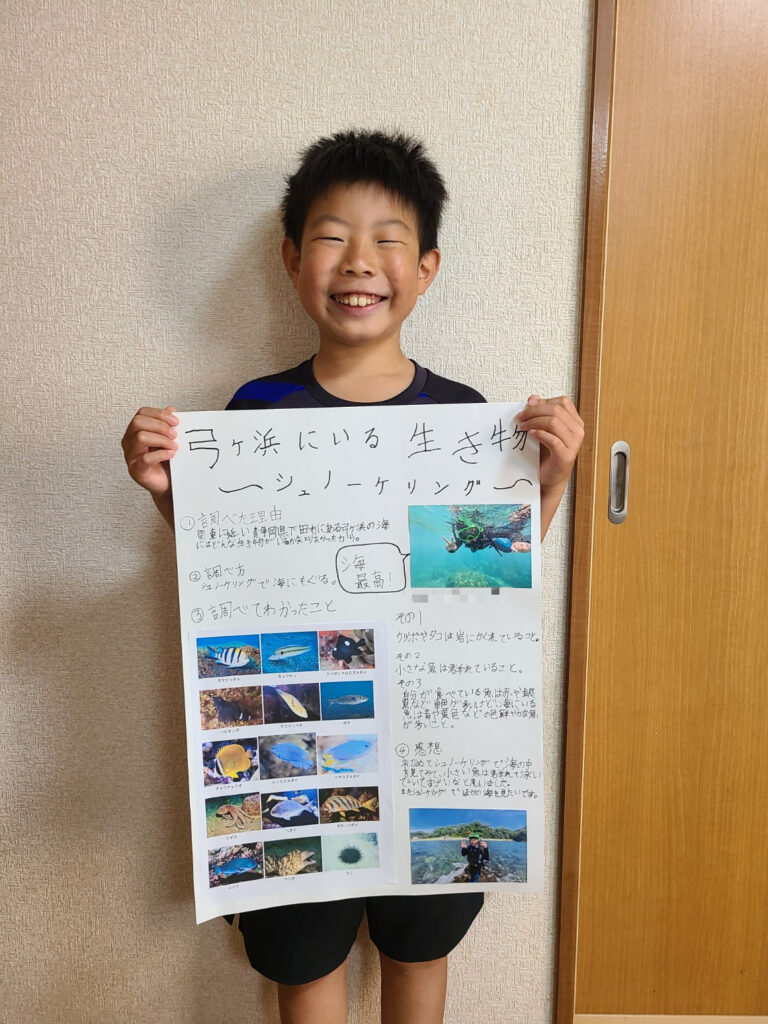 弓ヶ浜にいる生き物
〜シュノーケリング〜
①調べた理由
関東に近い静岡県下田市にある弓ヶ浜の海
にはどんな生き物がいるか知りたかったから。
②調べ方
シュノーケリングで海にもぐる。
海
最高！
③調べてわかったこと
その1
ウツボやタコは岩にかくれていること。
その2
小さな魚は群れていること。
その3
自分が食べている魚は赤や銀
魚は青や黄色などの色鮮やかな魚
が多いこと。
④感想
初めてシュノーケリングで海の中
を見てみて、小さい魚は群れで泳い
でいてすごいなと思いました。
またシュノーケリングでほかの海を見たいです。
オヤビッチャ
キュウセン
ミツボシクロスズメダイ
ブリ
チョウチョウウオ
ソラスズメダイ
マダコ
メジナ
ウツボ
ウニ